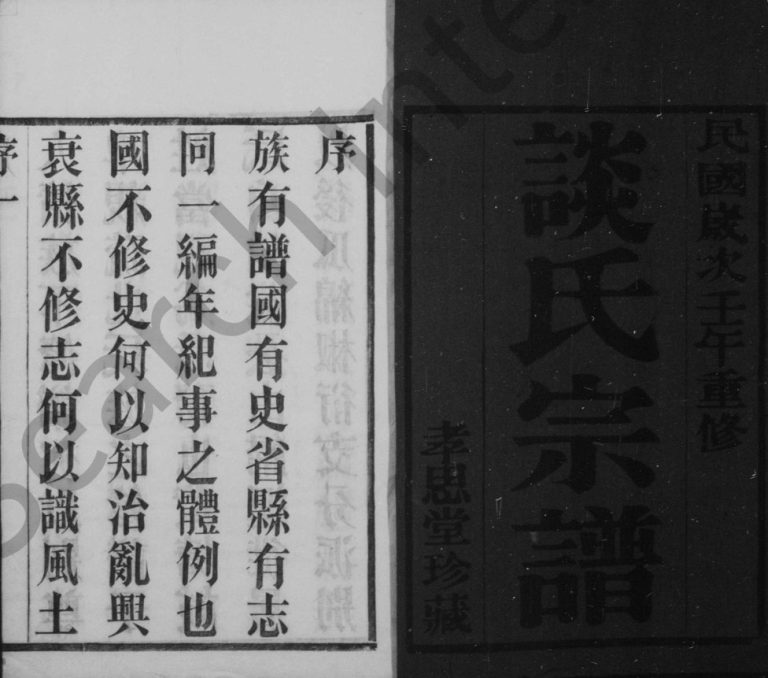 民國歲次壬午重修
談氏宗譜
孝思堂珍藏
序
族有譜國有史省縣有志
同一編年紀事之體例也
國不修史何以知治亂興
衰縣不修志何以識風土
序一
earch Inte